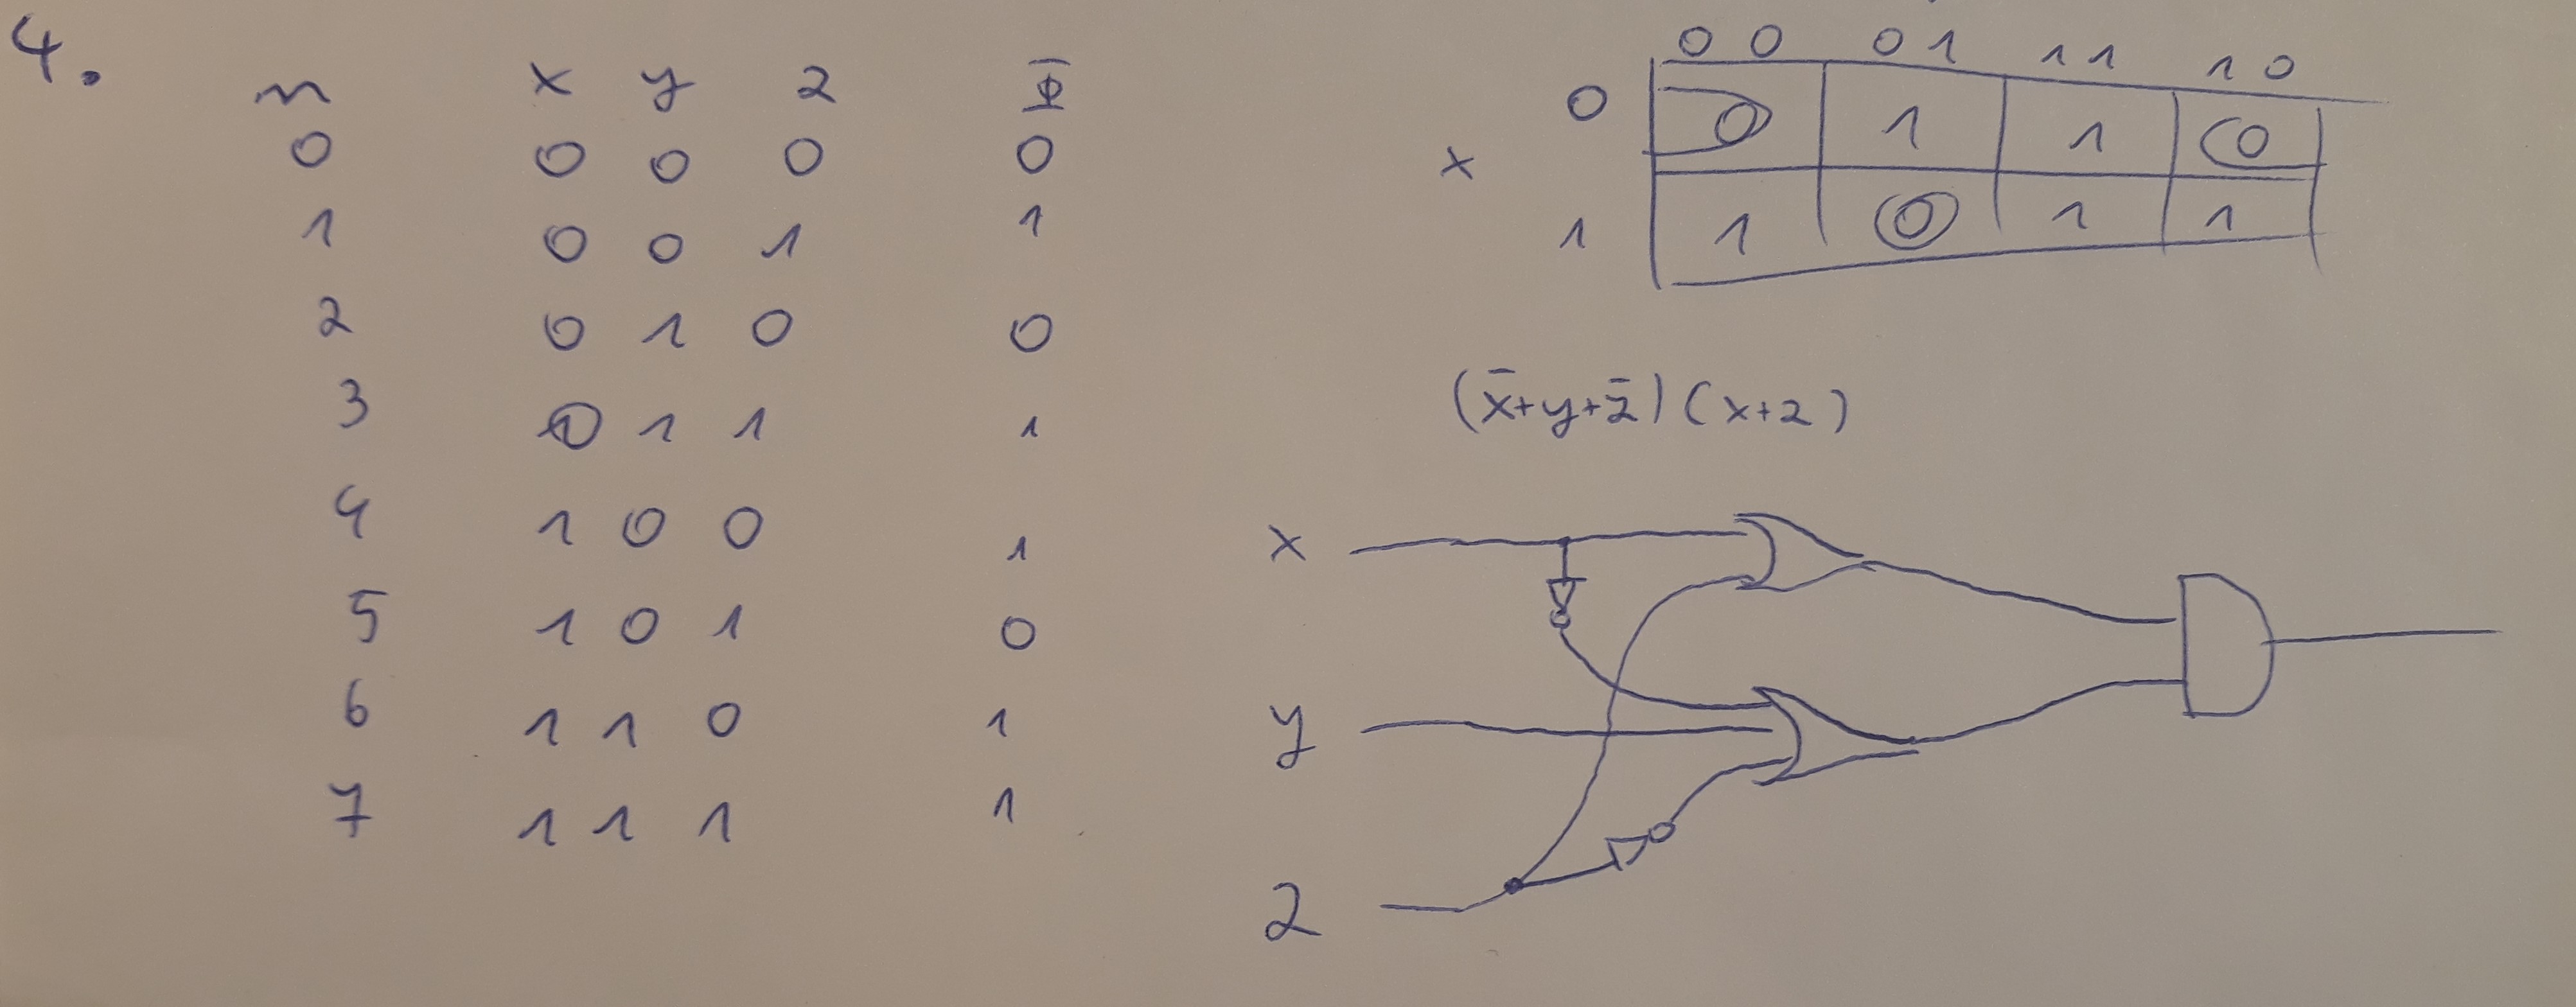 4.
n x y z Φ
0 0 0 0 0
1 0 0 1 1
2 0 1 0 0
3 0 1 1 1
4 1 0 0 1
5 1 0 1 0
6 1 1 0 1
7 1 1 1 1
00 01 11 10
0 0 1 1 0
x
1 1 0 1 1
(x̄+y+z̄)(x+z)
x
y
z